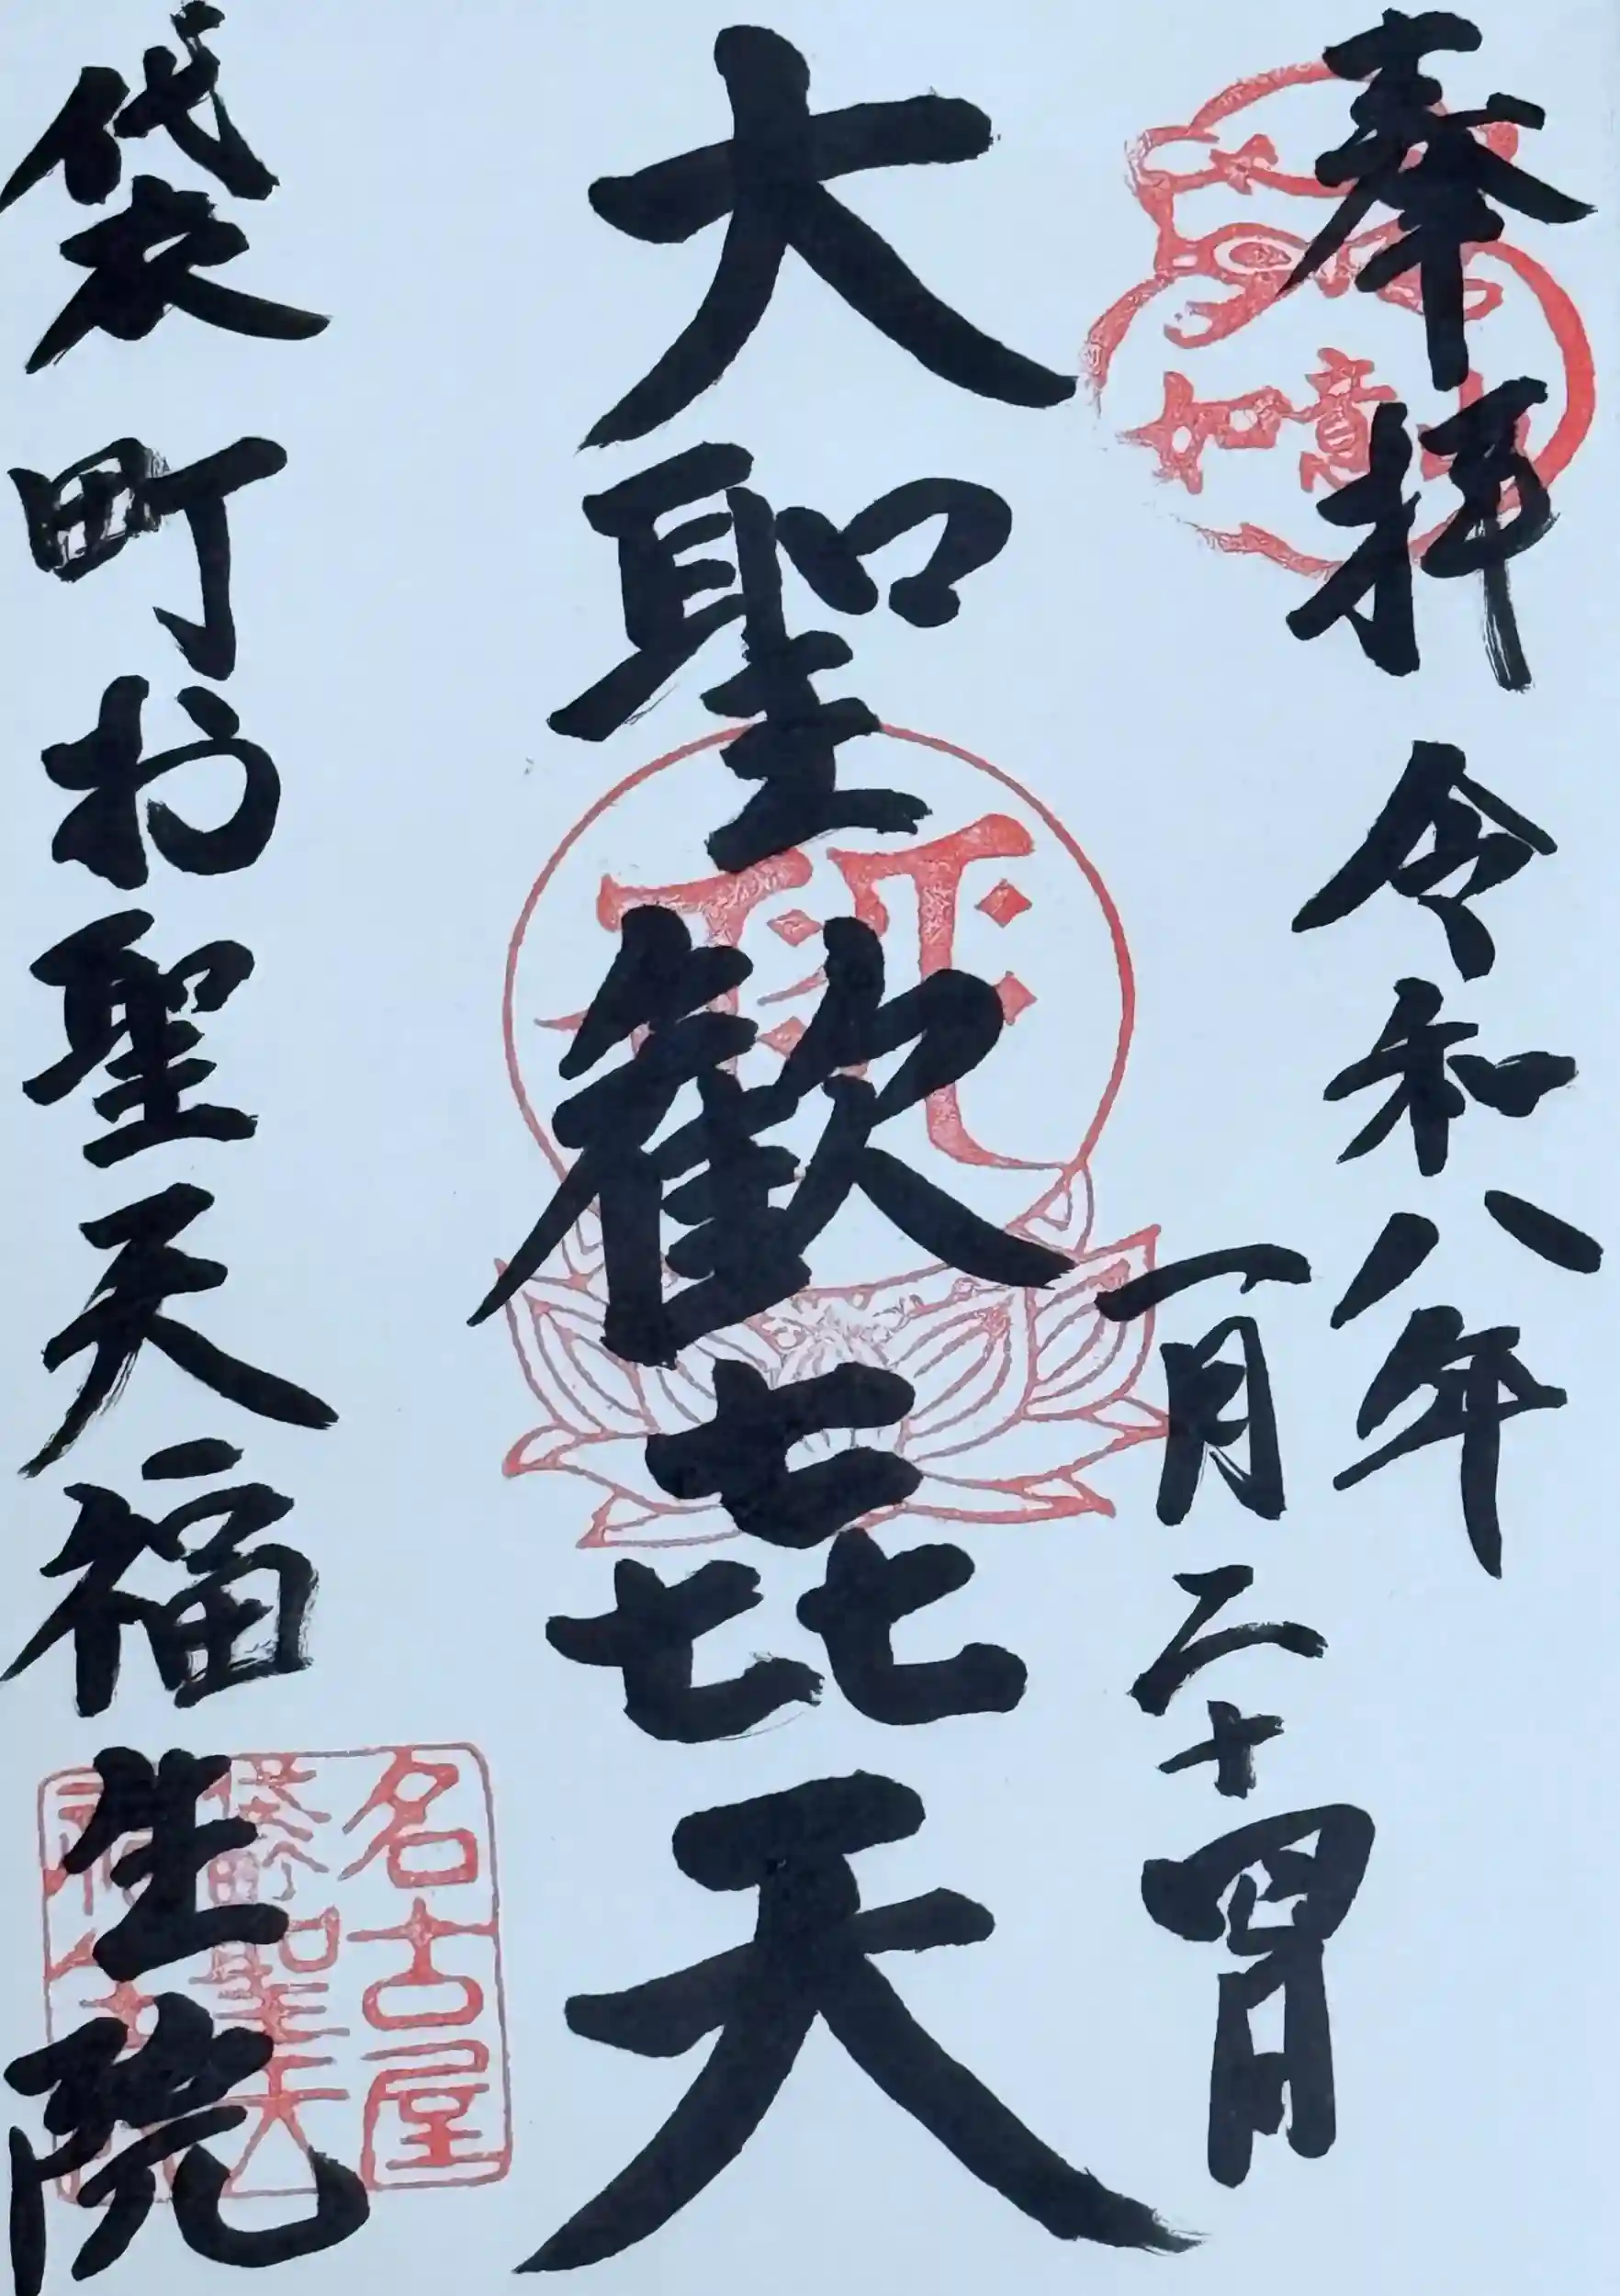 奉拝 令和八年
一月二十四日
如意
大聖歓㐂天
袋町お聖天福生院
名古屋
袋町聖天